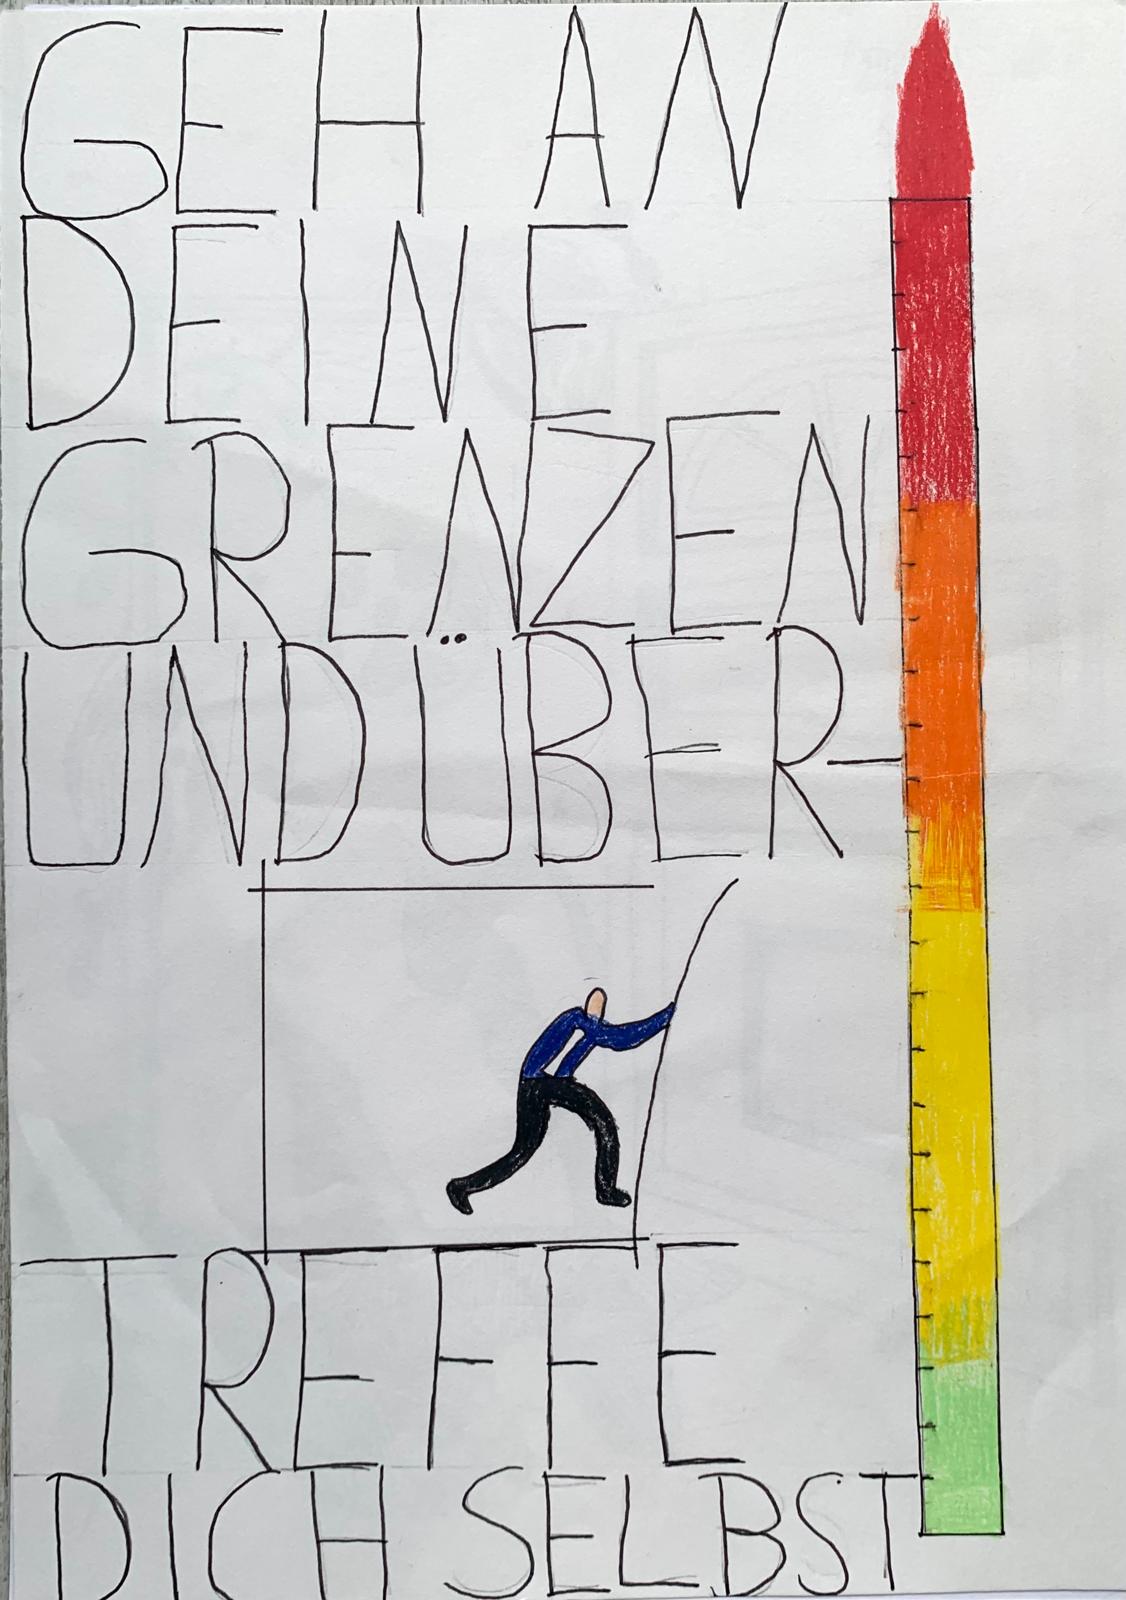 GEH AN
DEINE
GRENZEN
UND ÜBER-
TREFFE
DICH SELBST